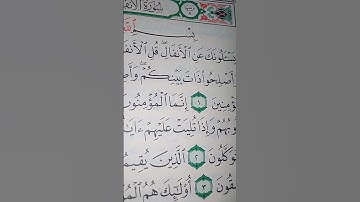 سُورَةُ الأَنفَ
بِسْمِ اللَّهِ
يَسْـَٔلُونَكَ عَنِ ٱلْأَنفَالِ قُلِ ٱلْأَنفَ
وَأَصْلِحُوا۟ ذَاتَ بَيْنِكُمْ وَأَطِ
مُّؤْمِنِينَ ١ إِنَّمَا ٱلْمُؤْمِنُونَ
قُلُوبُهُمْ وَإِذَا تُلِيَتْ عَلَيْهِمْ ءَايَٰتُ
يَتَوَكَّلُونَ ٢ ٱلَّذِينَ يُقِيمُ
يُنفِقُونَ ٣ أُو۟لَٰٓئِكَ هُمُ ٱلْمُ